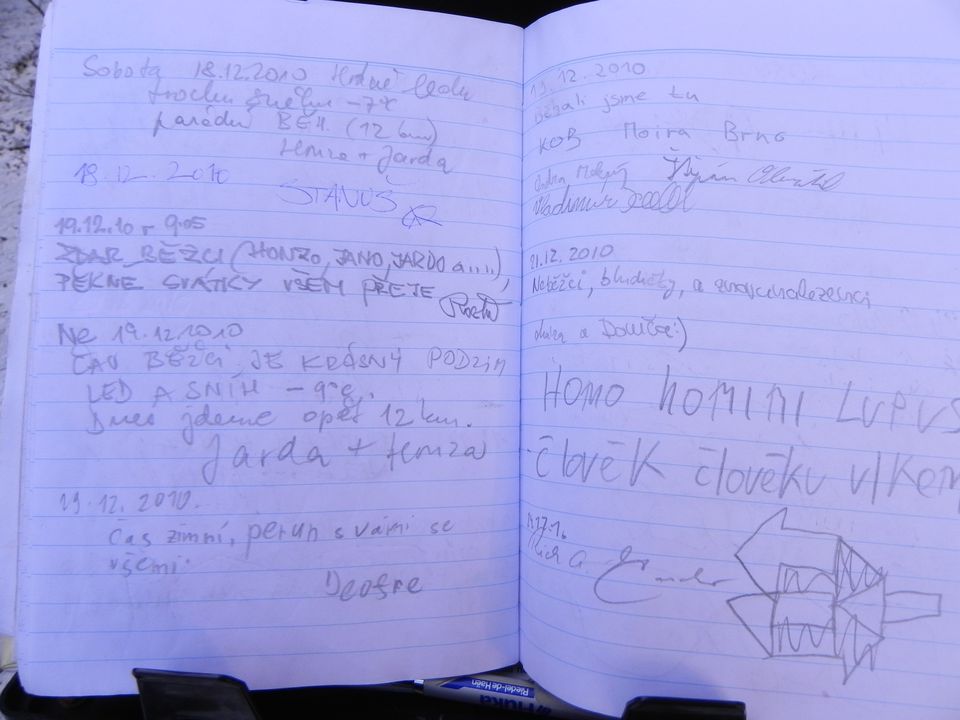 Sobota 18.12.2010 ledu
trochu sněhu -7°C
parádní BĚH. (12 km)
Honza + Jarda
18.12.2010
STANUŠ
19.12.10 9:05
ZDAR BĚŽCI (HONZO, JANO, JARDO a....),
PĚKNÉ SVÁTKY VŠEM PŘEJE
Ne 19.12.2010
ČAU BĚŽCI, JE KRÁSNÝ PODZIM
LED A SNÍH -9°C,
Dnes jdeme opět 12 km.
Jarda + Honza
19.12.2010.
čas zimní, perun s vámi se
všemi.
19.12.2010
běhali jsme tu
KOB Moira Brno
Vladimír
21.12.2010
Neběžci, bludičky, a
a Domča:)
Homo homini LUPUS
člověk člověku vlkem
Riedel-de Haën